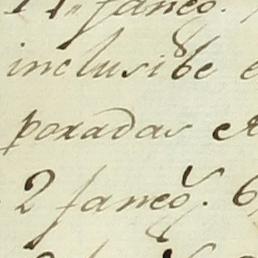 11,, faneg.
inclusibe e
poradas
2 faneg.s 6